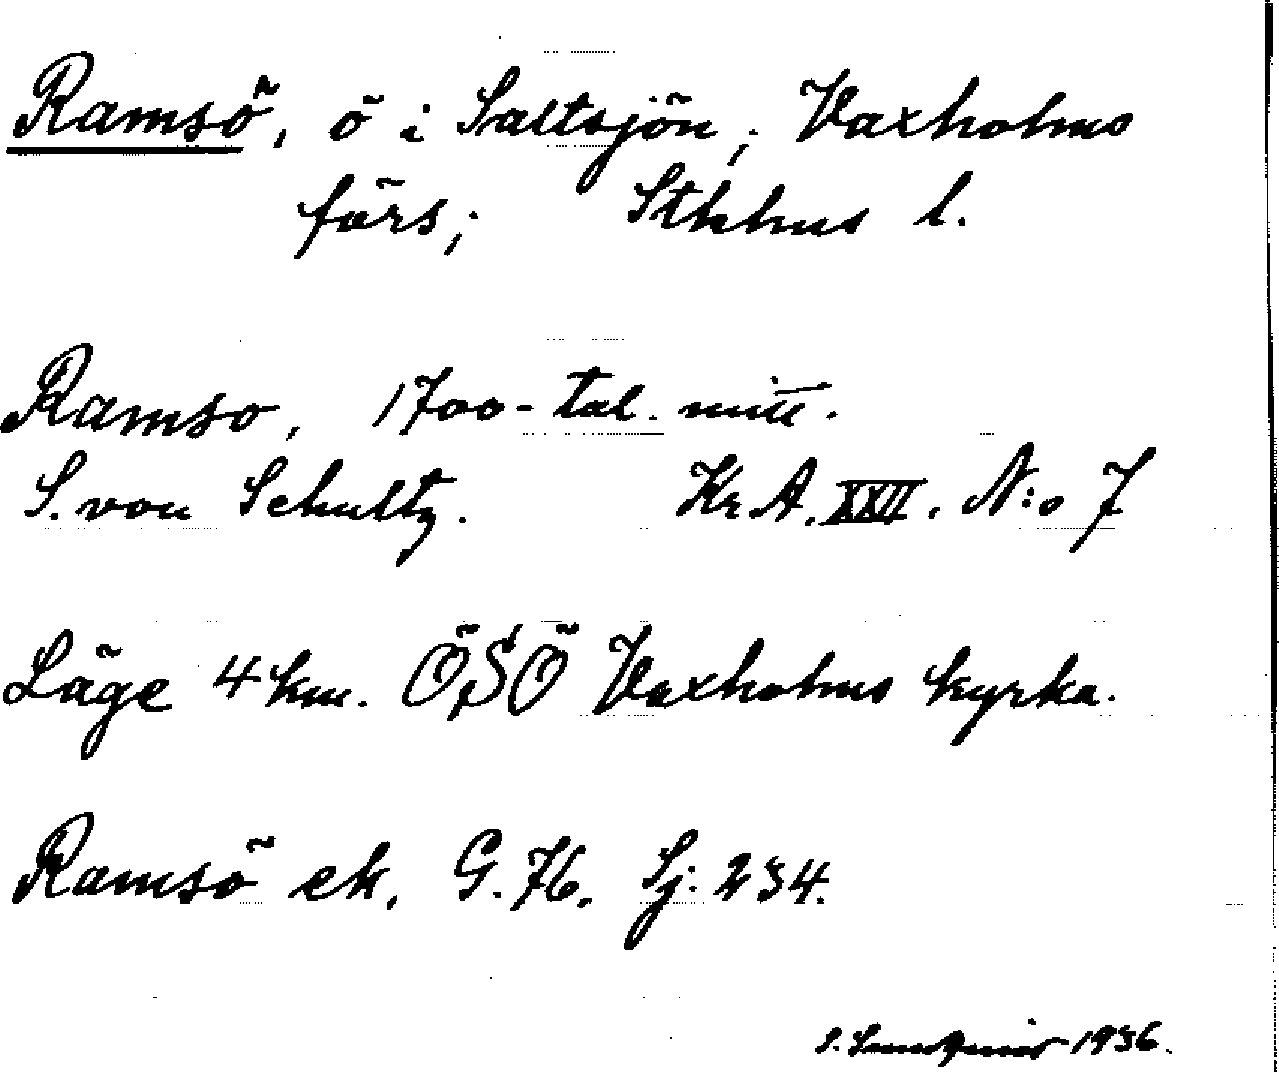 Ramsö, ö i Saltsjön, Vaxholms
förs; Sthlms l.
Ramso, 1700-tal. mitt.
S. von Schultz. Kr.A. XXII. N:o 7
Läge 4 km. ÖSÖ Vaxholms kyrka.
Ramsö ek. G. 76. Sj. 234.
S. 1936.